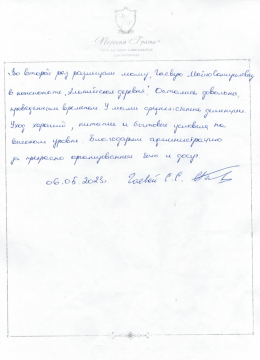 Во второй раз размещаем маму, Гаевую
в пансионате "Альпийская деревня". Остались довольны
проведенным временем. У мамы средняя стадия деменции.
Уход хороший, питание и бытовые условия на
высоком уровне. Благодарим администрацию
за прекрасно организованный быт и досуг.
06.05.2023г. Гаевой С.С.